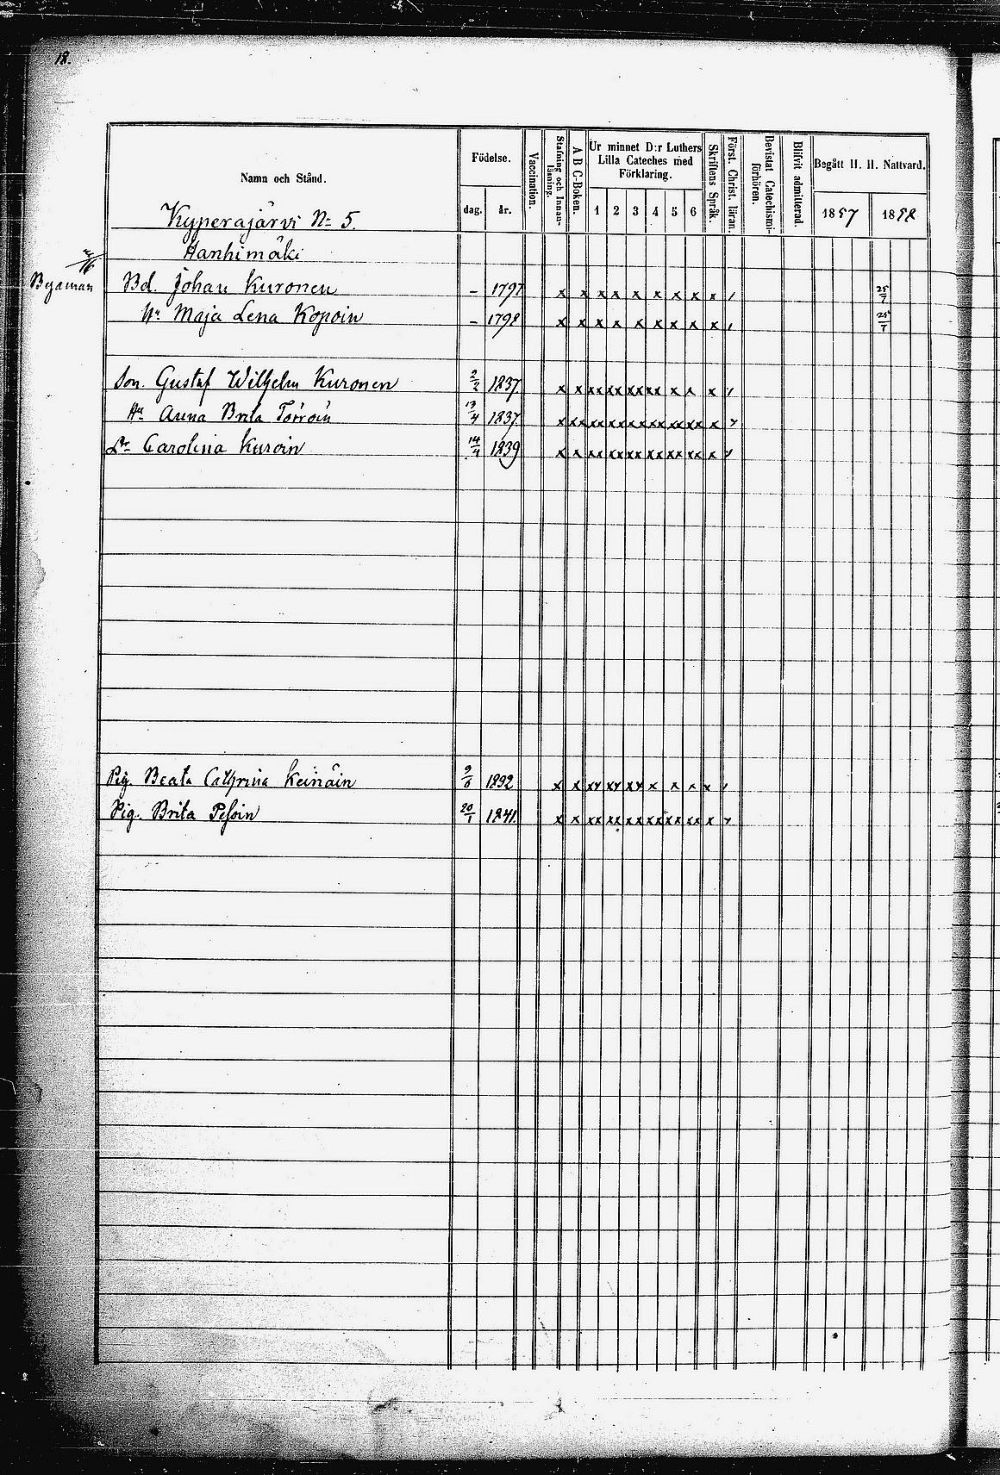 18.
Namn och Stånd.
Födelse.
dag. år.
Vaccination.
Stafning och Innan-läsning.
A B C-Boken.
Ur minnet D:r Luthers Lilla Cateches med Förklaring.
1 2 3 4 5 6
Skriftens Språk.
Först. Christ. läran.
Bevistat Catechismi-förhören.
Blifvit admitterad.
Begått H. H. Nattvard.
1857 1858
Kyperäjärvi No 5.
Hanhimäki
Byaman Bd. Johan Kuronen – 1797 x x x x x x x x x / 25/7
Hu Maja Lena Kopoin – 1798 x x x x x x x x x / 25/7
Son. Gustaf Wilhelm Kuronen 2/2 1837 x x xx xx xx xx x x x /
Hu Anna Brita Törröin 13/4 1837 x xx xx xx xx xx xx xx x
Dr Carolina Kuroin 14/4 1839 x x xx xx xx xx xx xx x
Pig. Beata Cathrina Keinäin 9/6 1832 x x xx xx xx x x x x /
Pig. Brita Pesoin 20/1 1841. x x xx xx xx xx xx xx x